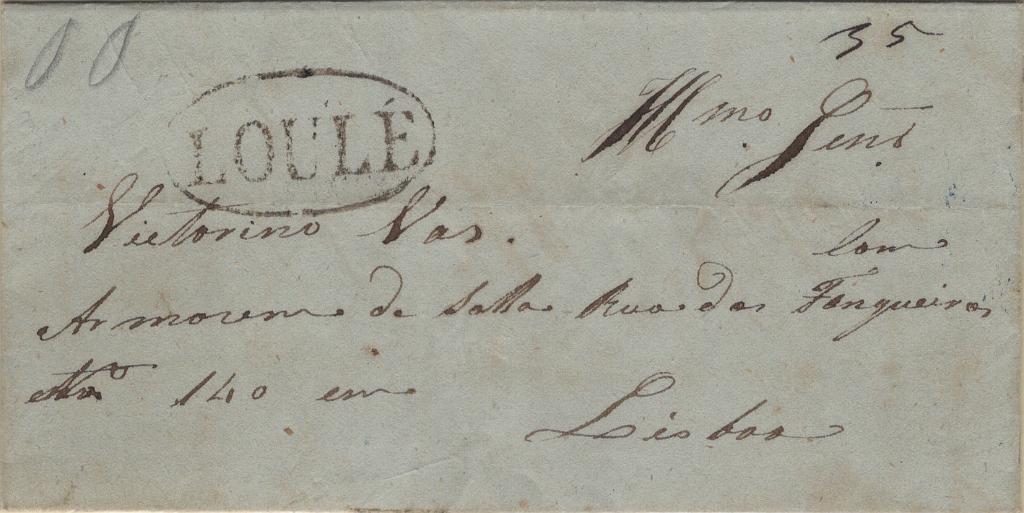 35
LOULÉ
Illmo. Senr
Victorino Vas.
com
Armorem de Solla Rua das Fanqueiros
No 140 em
Lisboa